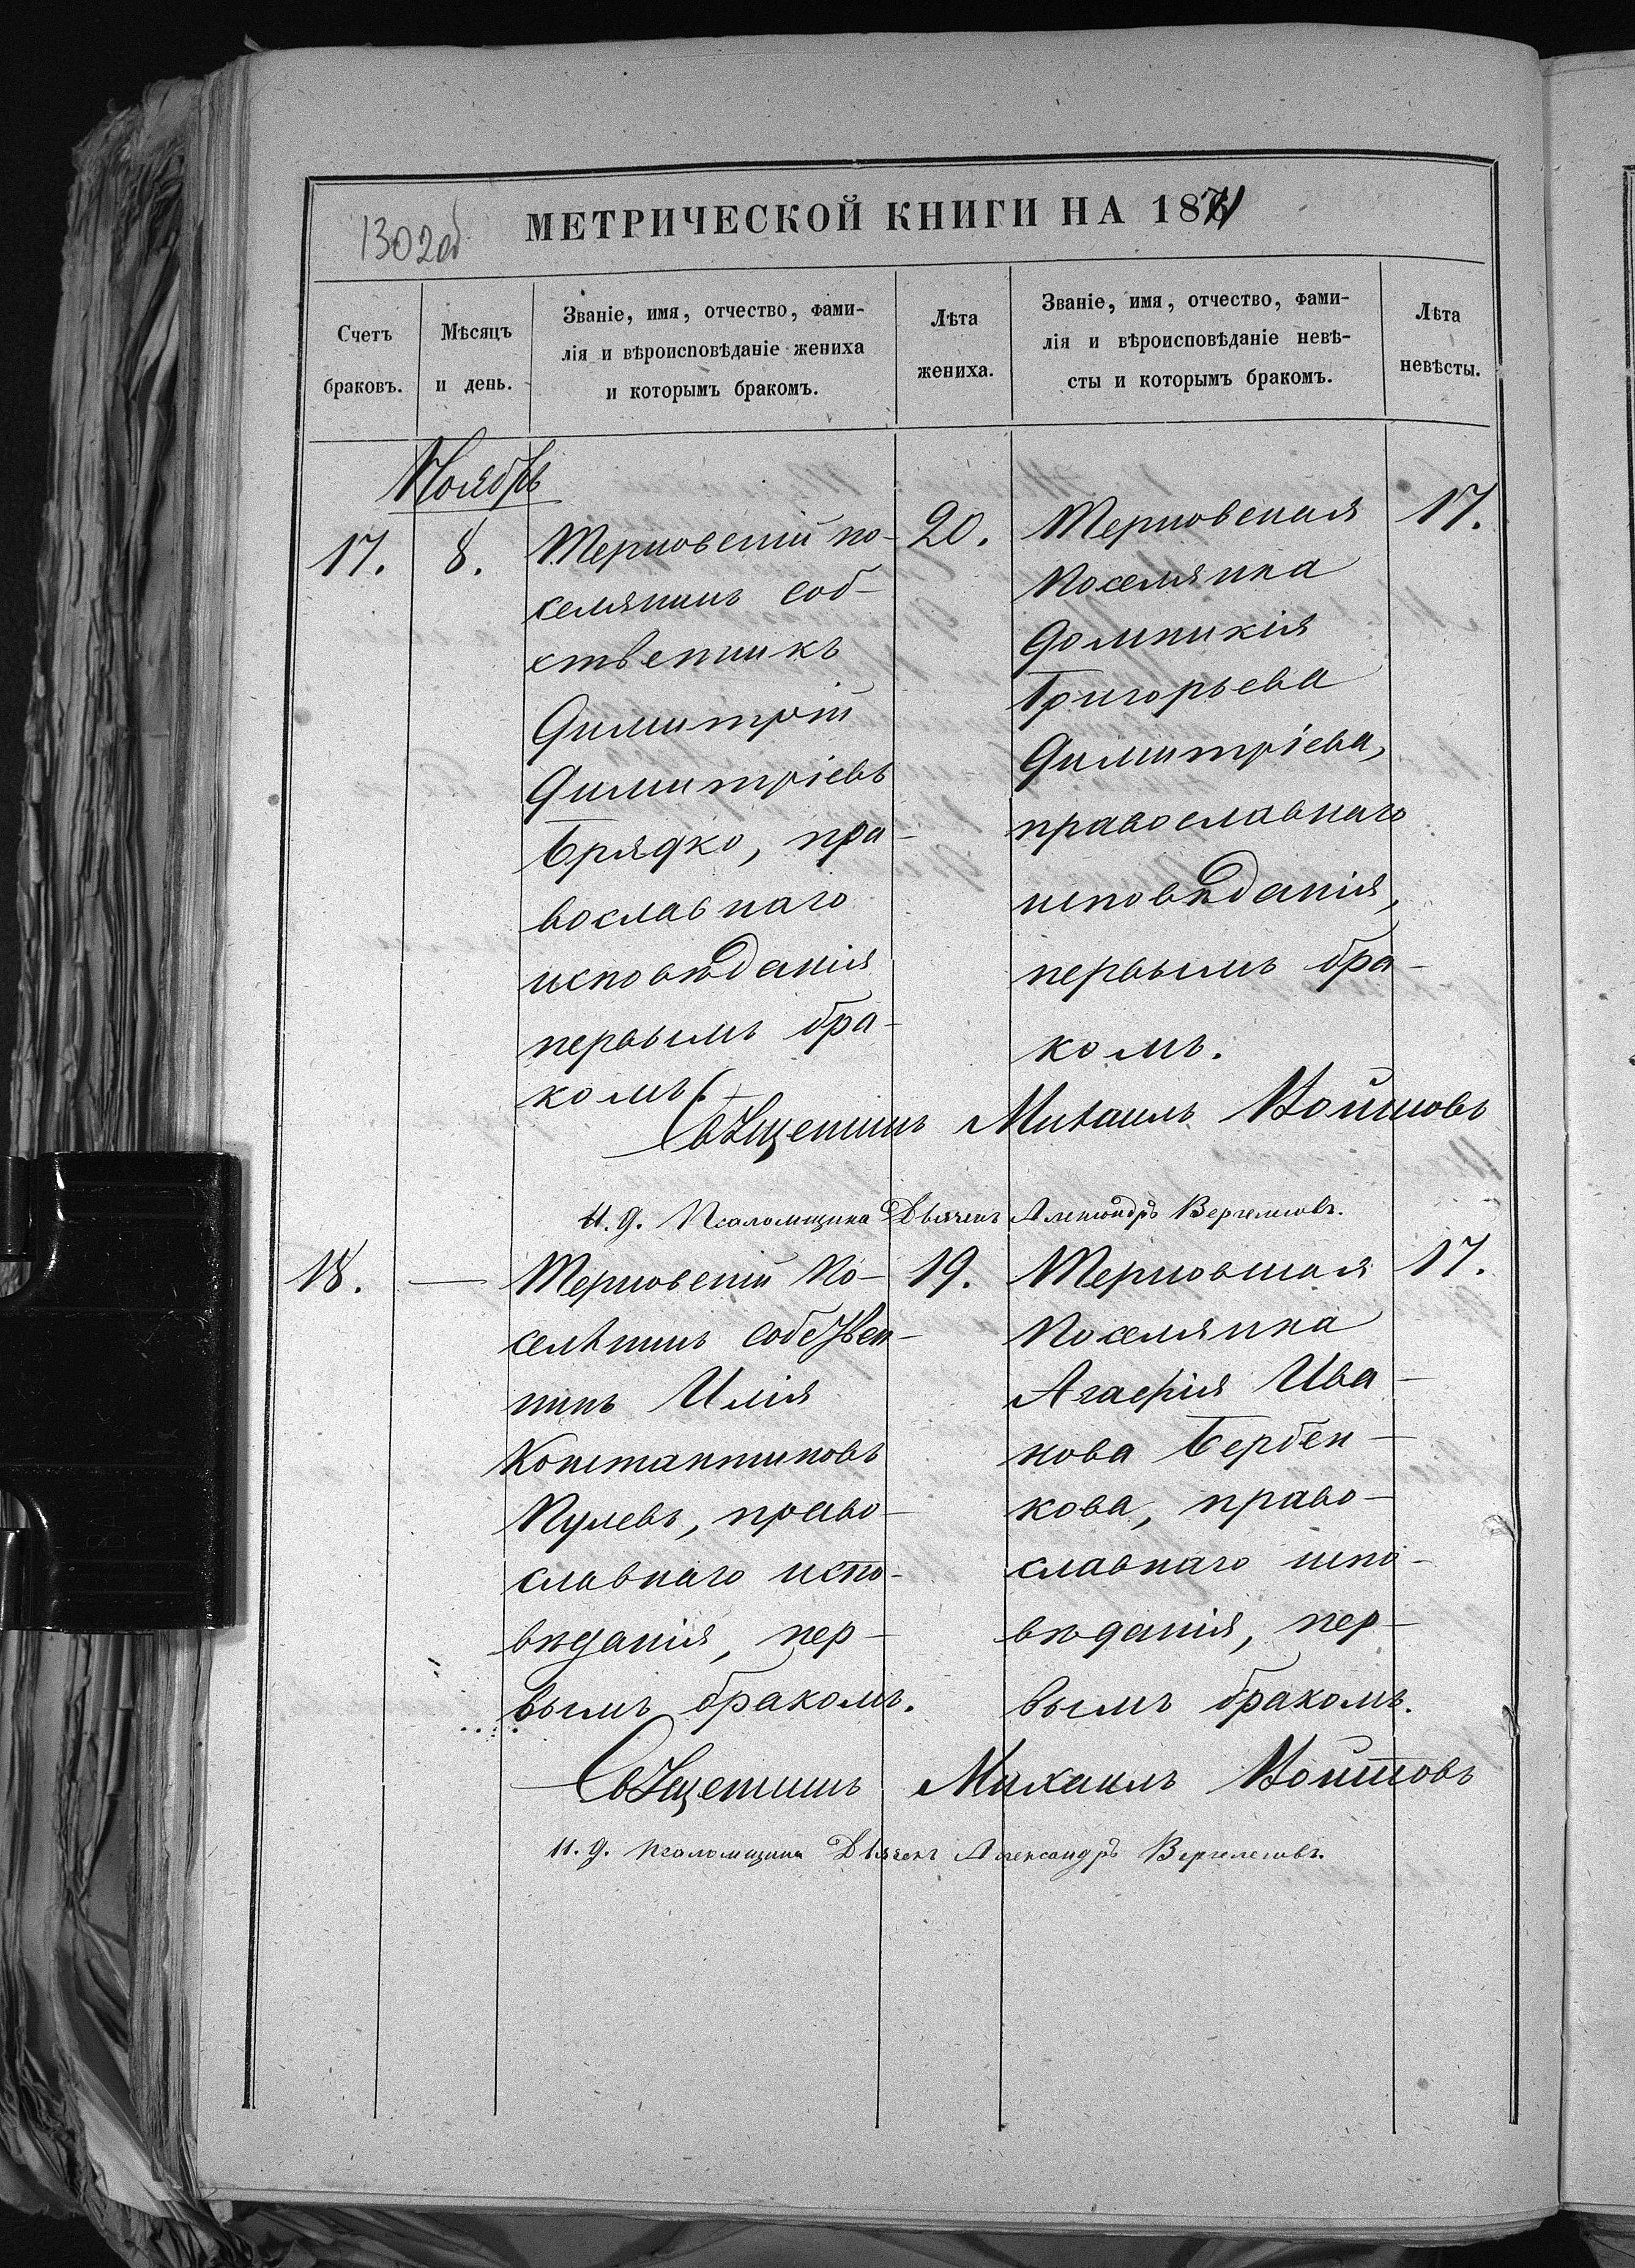 1302об
МЕТРИЧЕСКОЙ КНИГИ НА 1871
Счетъ браковъ.
Мѣсяцъ и день.
Званіе, имя, отчество, фами-
лія и вѣроисповѣданіе жениха
и которымъ бракомъ.
Лѣта жениха.
Званіе, имя, отчество, фами-
лія и вѣроисповѣданіе невѣ-
сты и которымъ бракомъ.
Лѣта невѣсты.
Ноябрь
17.
8.
Терновскій по-
селянинъ соб-
ственникъ
Димитрій
Димитріевъ
Брядко, пра-
вославнаго
исповѣданія
первымъ бра-
комъ.
20.
Терновская
Поселянка
Домникія
Григорьева
Димитріева,
православнаго
исповѣданія,
первымъ бра-
комъ.
17.
Священникъ Михаилъ Войтовъ
И. д. Псаломщика Дьячекъ Александръ
18.
—
Терновскій По-
селянинъ Собствен-
никъ Илія
Константиновъ
Кулевъ, право-
славнаго испо-
вѣданія, пер-
вымъ бракомъ.
19.
Терновская
Поселянка
Агафія Ива-
нова Бербен-
кова, право-
славнаго испо-
вѣданія, пер-
вымъ бракомъ.
17.
Священникъ Михаилъ Войтовъ
И. д. псаломщика Дьячекъ Александръ